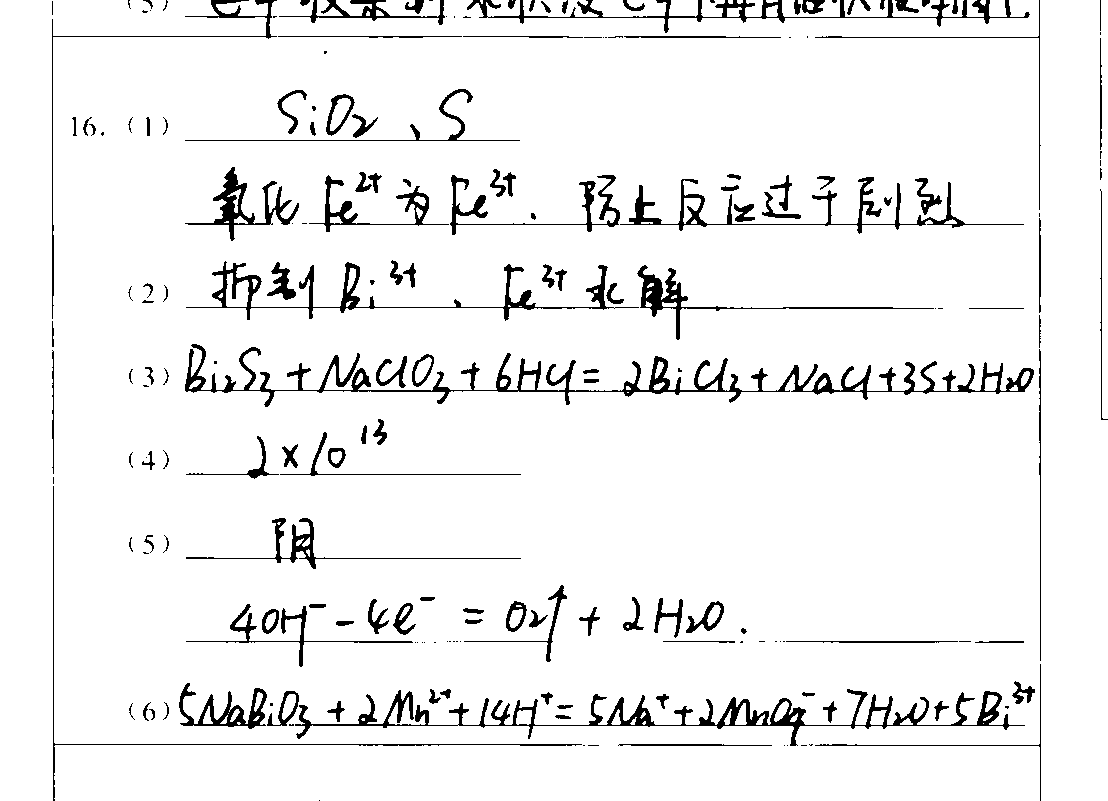 16. (1) SiO₂、S
氧化Fe²⁺为Fe³⁺. 防止反应过于剧烈
(2) 抑制Bi³⁺、Fe³⁺水解.
(3) Bi₂S₃+NaClO₃+6HCl=2BiCl₃+NaCl+3S+2H₂O
(4) 2×10¹³
(5) 阴
4OH⁻-4e⁻=O₂↑+2H₂O.
(6) 5NaBiO₃+2Mn²⁺+14H⁺=5Na⁺+2MnO₄⁻+7H₂O+5Bi³⁺